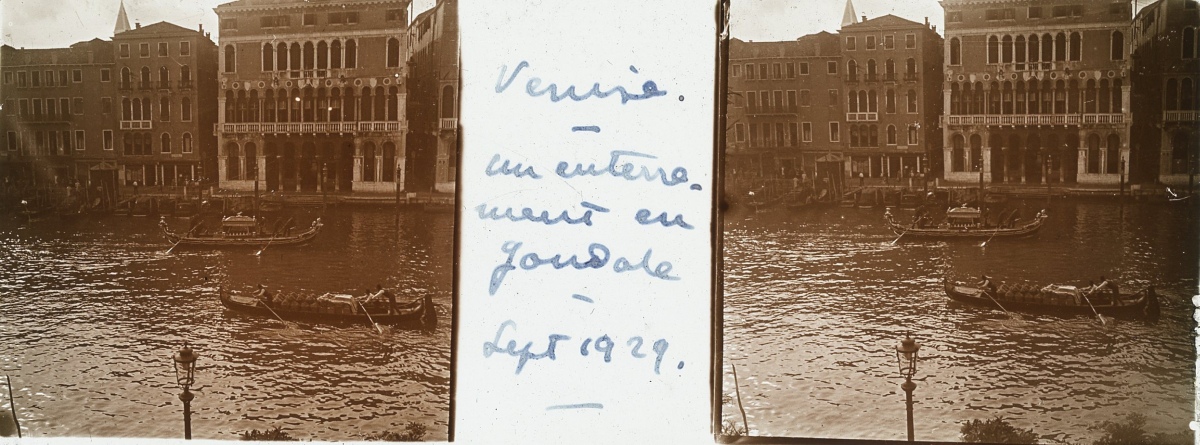 Venise.
—
un enterre-
ment en
gondole
—
Sept 1929.
—